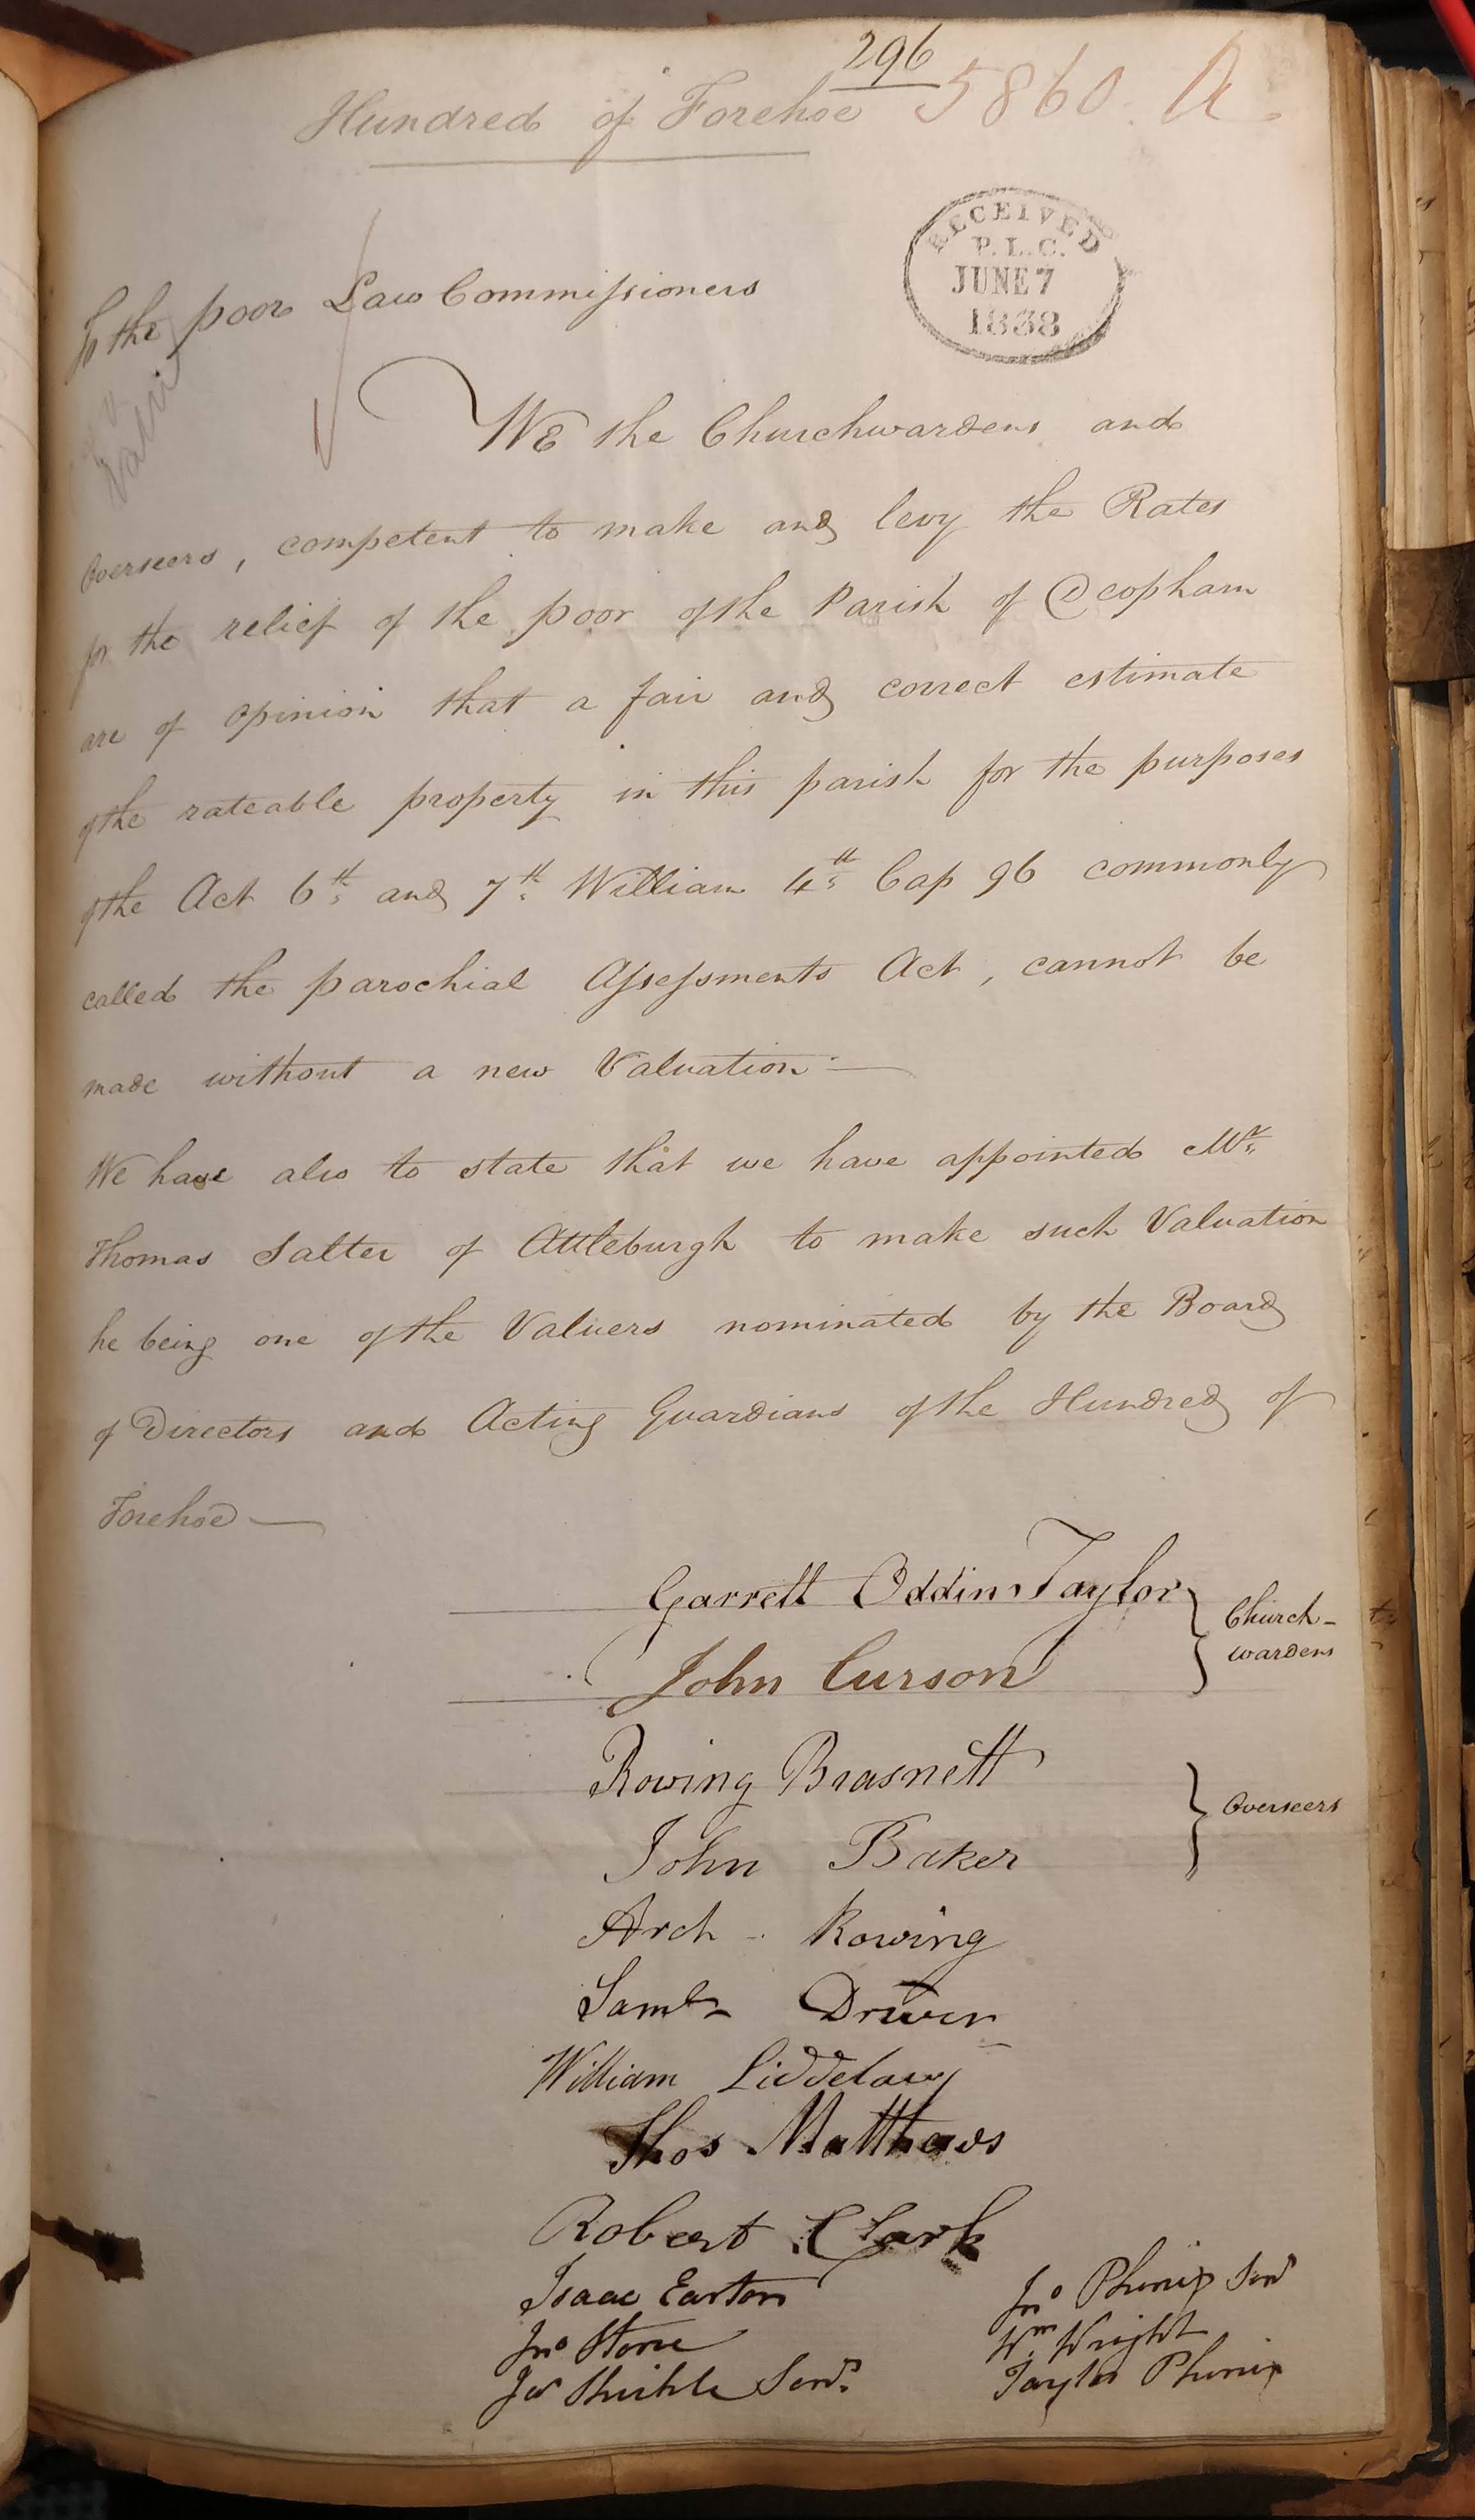 296
Hundred of Forehoe 5860. A
RECEIVED
P.L.C.
JUNE 7
1838
To the poor Law Commissioners
We the Churchwardens and
Overseers, competent to make and levy the Rates
for the relief of the poor of the Parish of Deopham
are of opinion that a fair and correct estimate
of the rateable property in this parish for the purposes
of the Act 6th and 7th William 4th Cap 96 commonly
called the parochial Assessments Act, cannot be
made without a new Valuation—
We have also to state that we have appointed Mr
Thomas Salter of Attleburgh to make such Valuation
he being one of the Valuers nominated by the Board
of Directors and Acting Guardians of the Hundred of
Forehoe—
Garrett Oddin Taylor } Church-
wardens
John Curson
Rowing Brasnett
} Overseers
John Baker
Arch Rowing
Saml Driver
William Liddelow
Thos Matthews
Robert Clark
Isaac Earton
Jno Stone
Senr
Jno Phenix Senr
Wm Wright
Taylor Phenix